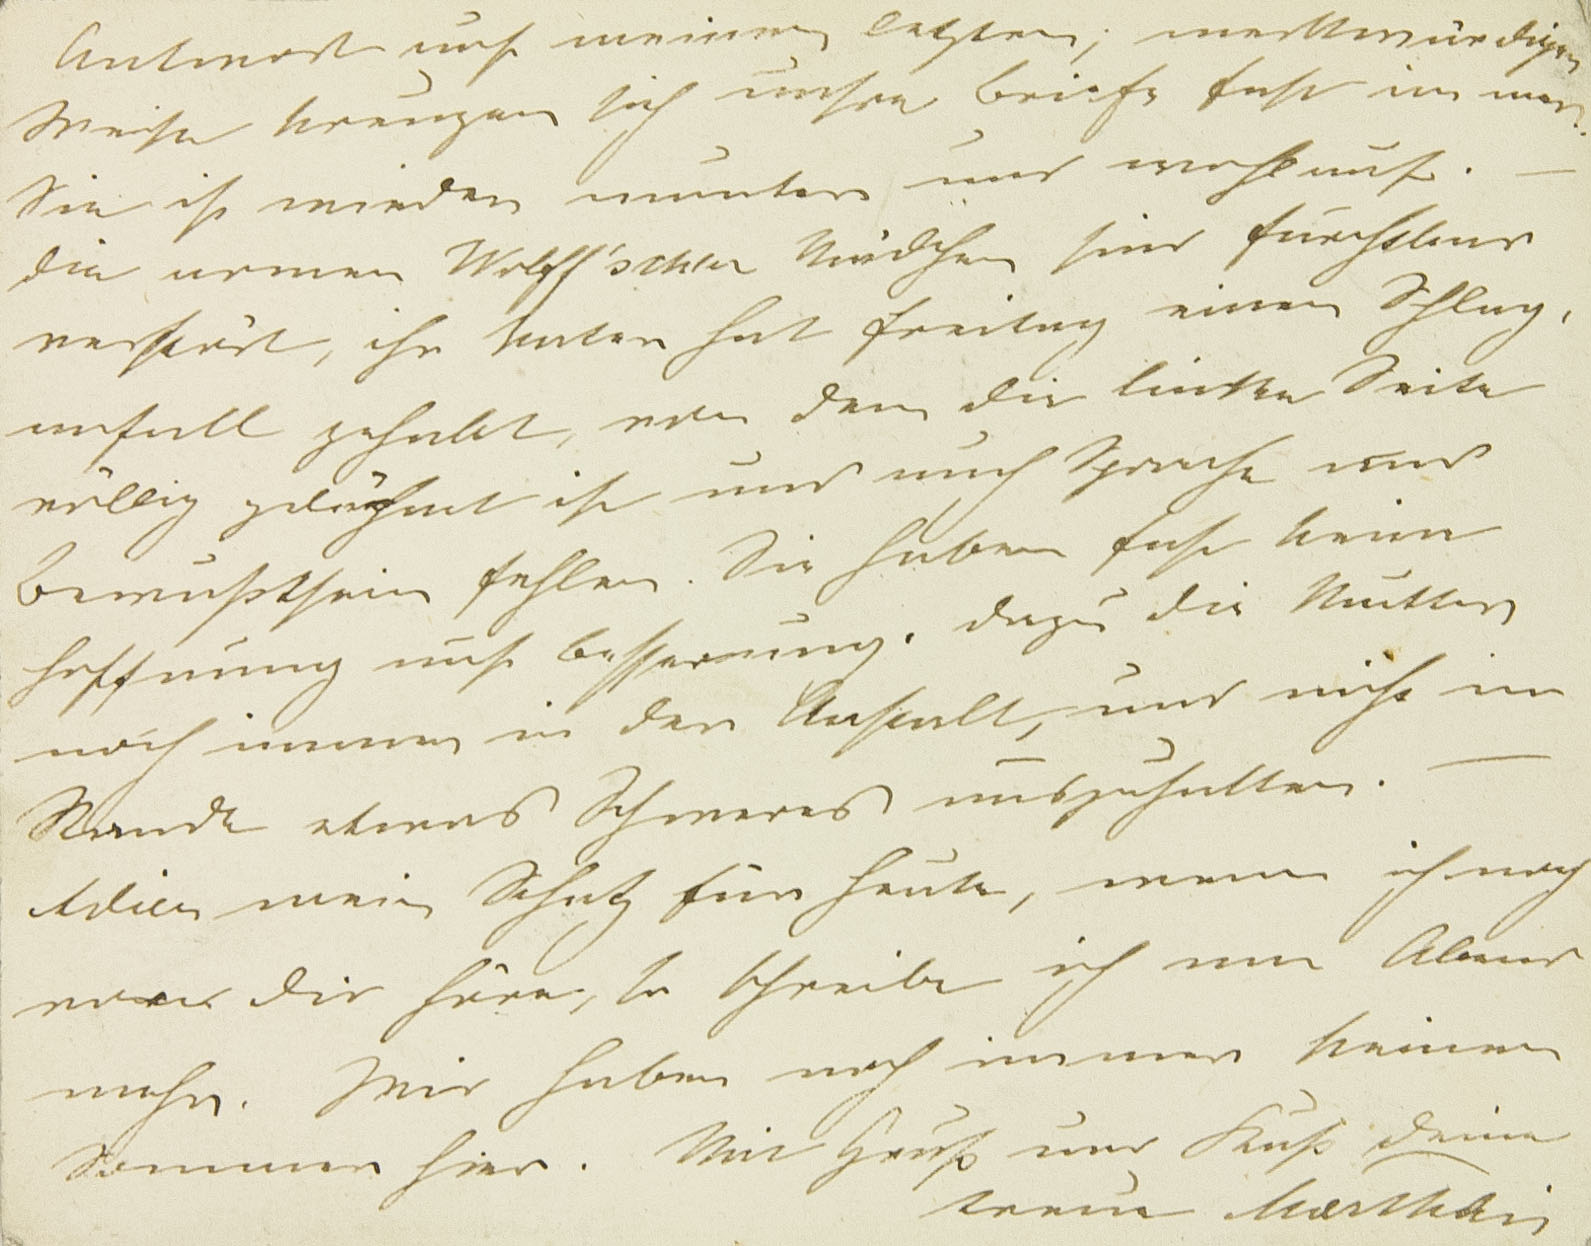 Antwort auf meinen letzten; merkwürdigen
Weise kreuzen sich unsre Briefe fast immer.
Sie ist wieder munter und wohlauf. —
Die armen Wolff'schen Mädchen sind furchtbar
verstört, ihr Vater hat Freitag einen Schlag,
anfall gehabt, von dem die linke Seite
völlig gelähmt ist und auch Sprache und
Bewußtsein fehlen. Sie haben fast keine
Hoffnung auf Besserung. Dazu die Mutter
noch immer in der Anstalt, und nicht im
Stande etwas Schweres auszuhalten. —
Adieu mein Schatz für heute, wenn ich noch
von dir höre, so schreibe ich am Abend
mehr. Wir haben noch immer keinen
Sommer hier. Mit Gruß und Kuß deine
treue Marthai